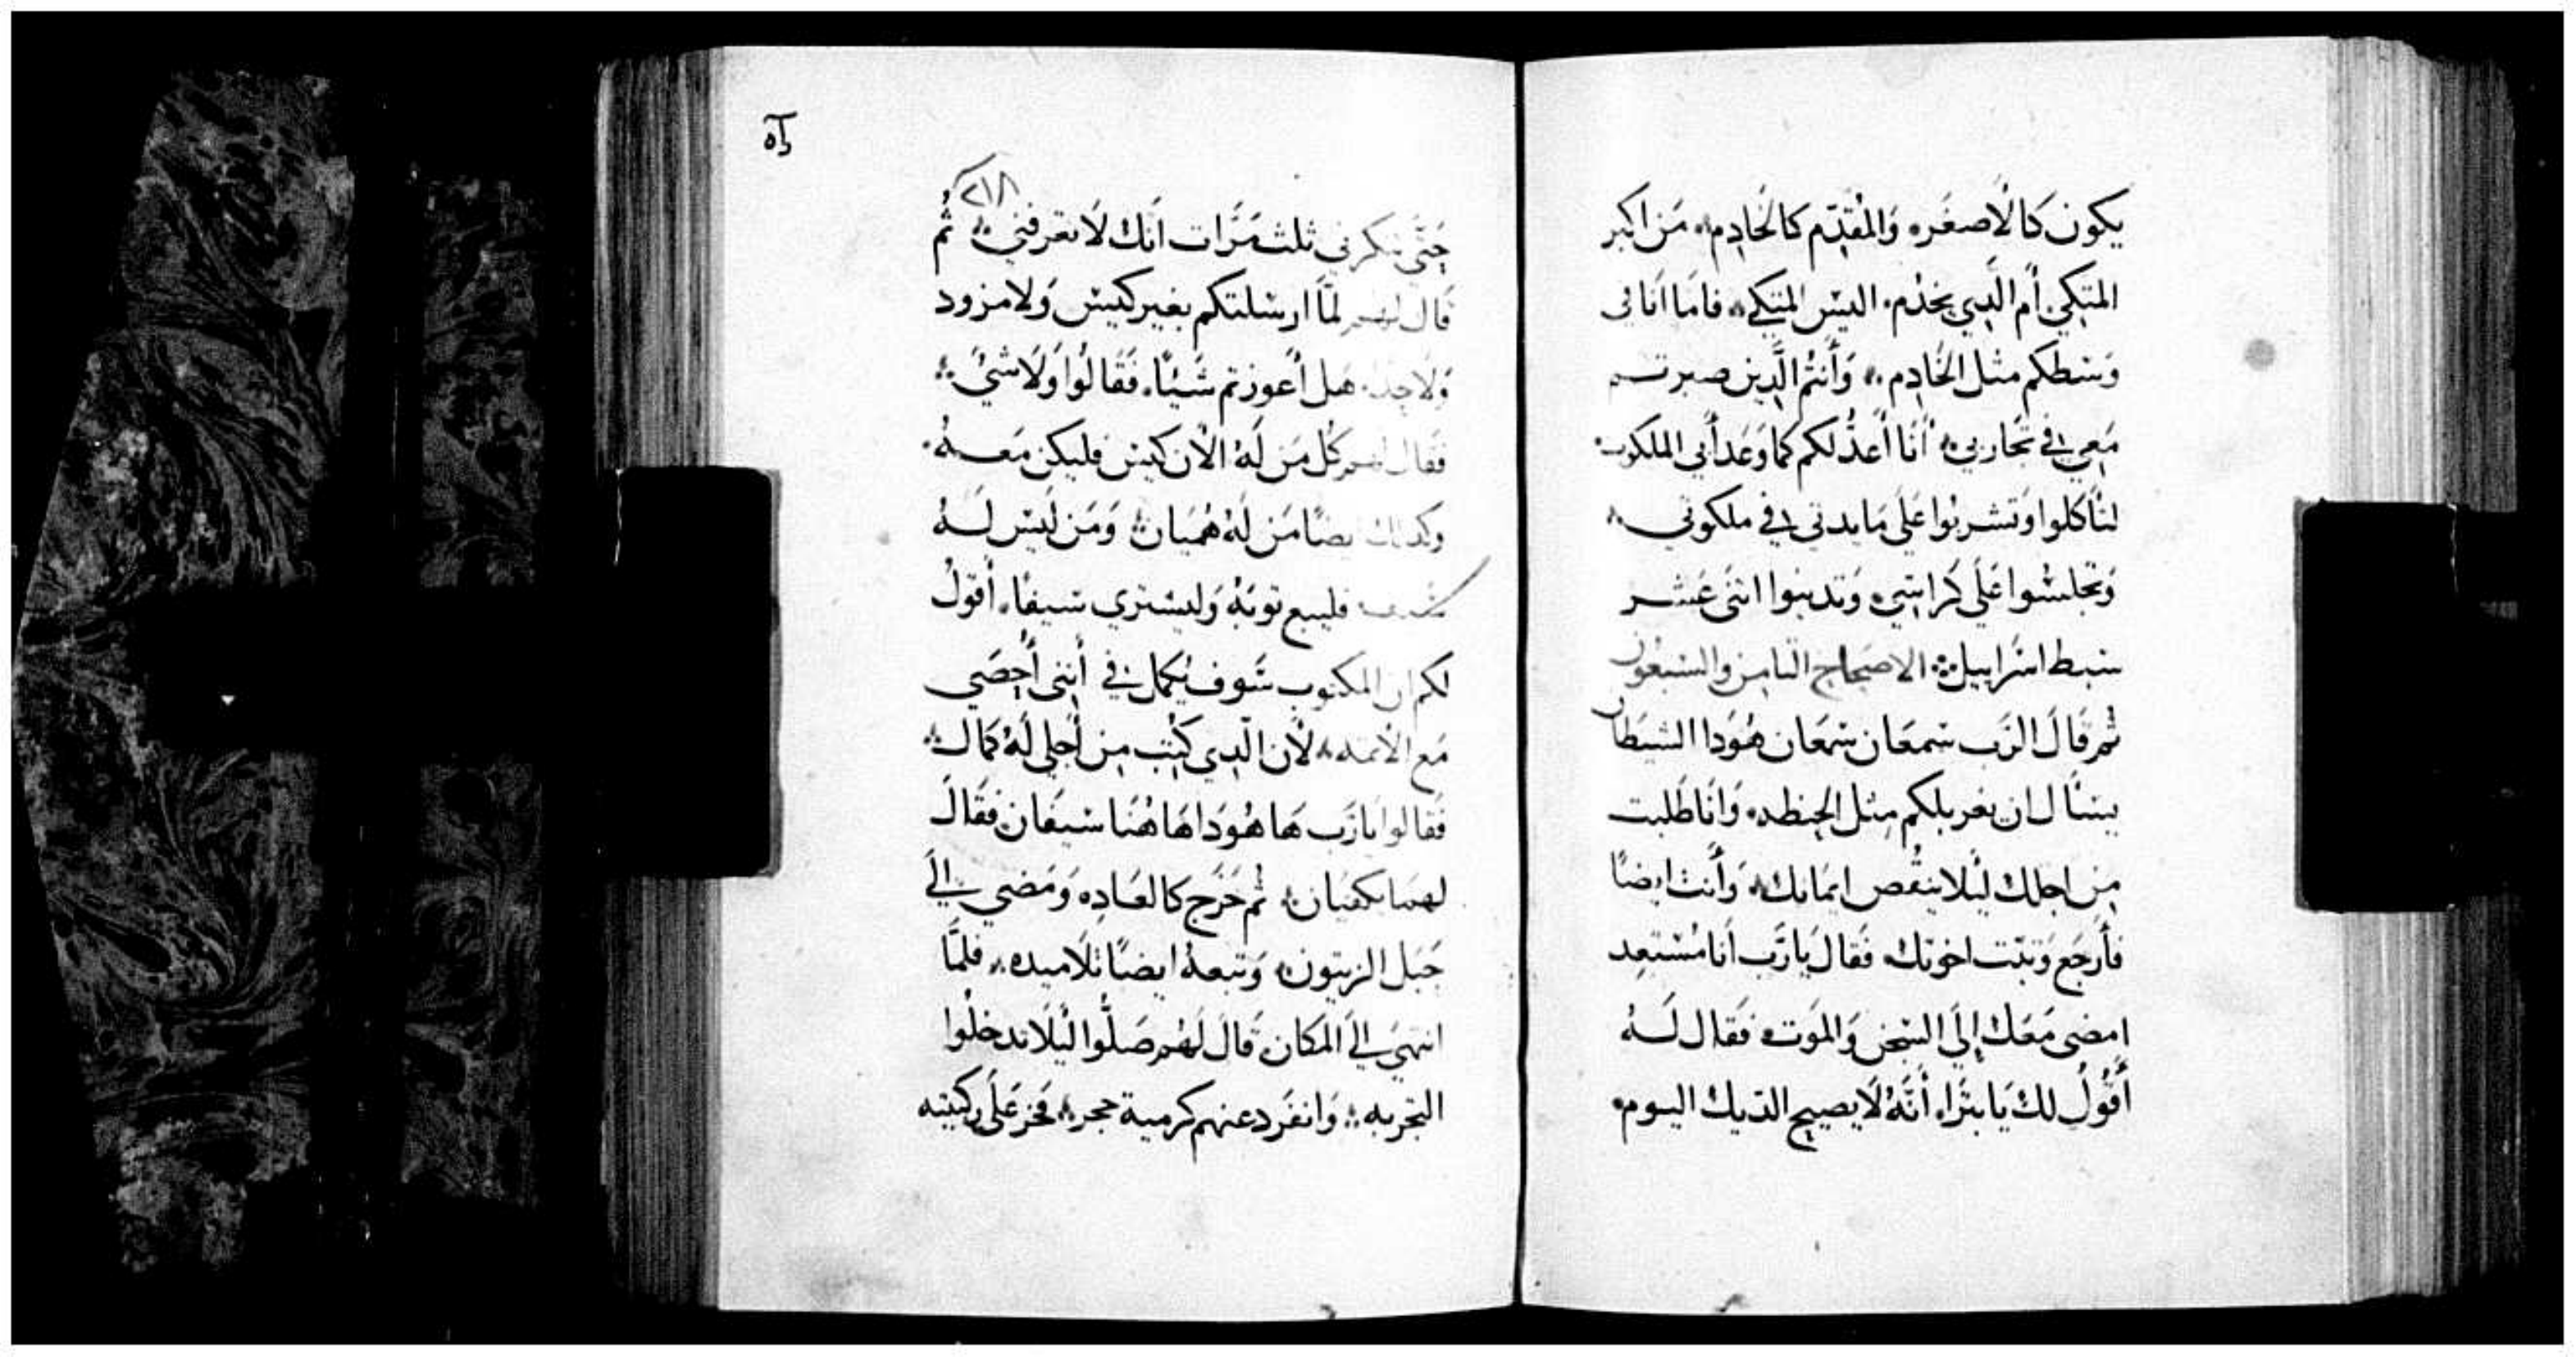 يكون كالأصغر، والمُقدّم كالخادم. مَن اكبر
المتكي أم الَّذي يخدُم. اليس المتكي. فاما أنا في
وَسَطكم مثل الخَادِم. وَأنتُم الَّذين صبرتم
مَعي في تجَاربي. أنا أعدُّ لكم كما وَعَد أبي الملكوت.
لتَأكلوا وَتشربُوا عَلَى مَايدتي في ملكوتي
وَتجلسُوا عَلَى كَراسي. وَتدينوا اثنَى عَشر
سبط اسرَاييل. الاصحاح الثامن والسبعون
ثم قَالَ الرَب سمعَان سمعَان هُوَدا الشيطان
يسَال ان يغربلكم مِثل الحنطه. وَانَا طَلبت
مِن اجلك ليَلا ينقُص ايمَانك. وَأنت ايضًا
فأرجَع وَتبّت اخوتك. فَقال يَا رَب أنا مُستَعِد
امضي مَعَك إلَى السّجن وَالموَت. فقال لَهُ
أقُولُ لك يَا بثرَا، أنَّهُ لَا يصيح الدّيك اليوم.
٥٢
٢١٨
حَتَّى تنكرني ثلث مَرَّات انَك لَا تعرفني. ثُم
قال لهم لمَّا ارسَلتكم بغير كيس وَلا مزود
وَلَا حذا. هَل أعوزتم شَيئًا. فَقَالُوا وَلَا شئ.
فقَال لهم كُل مَن لَهُ الأن كيس فليكن مَعهُ.
وكذلك ايضًا مَن لَهُ هُميَان. وَمَن لَيس لَهُ
سيف فليبع ثوبَهُ وَليشتري سَيفًا. أقولُ
لكم ان المكتوب سَوف يُكمل في أنني أُحصَى
مَع الأثمه. لأن الَّذي كُتِب مِن أجلي لَهُ كمَال.
فَقَالوا يَا رَب هَا هُوَدا هَاهُنَا سيفان. فقَال
لهمَا يكفيَان. ثُم خَرَج كالعَاده وَمَضي إلَى
جَبَل الزيتون. وَتبعهُ ايضًا تلاميده. فلمَّا
انتهَي إلَى المكان قَالَ لَهُم صَلُّوا لِيَلَا تدخلُوا
التجربه. وَانفَرد عنهم كرمية حجر. فخر عَلَى ركبتيه